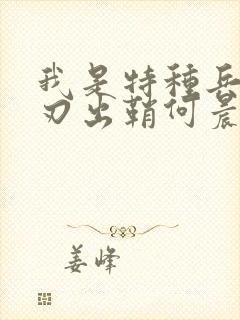 我是特種兵
刃出鞘何晨
姜峰